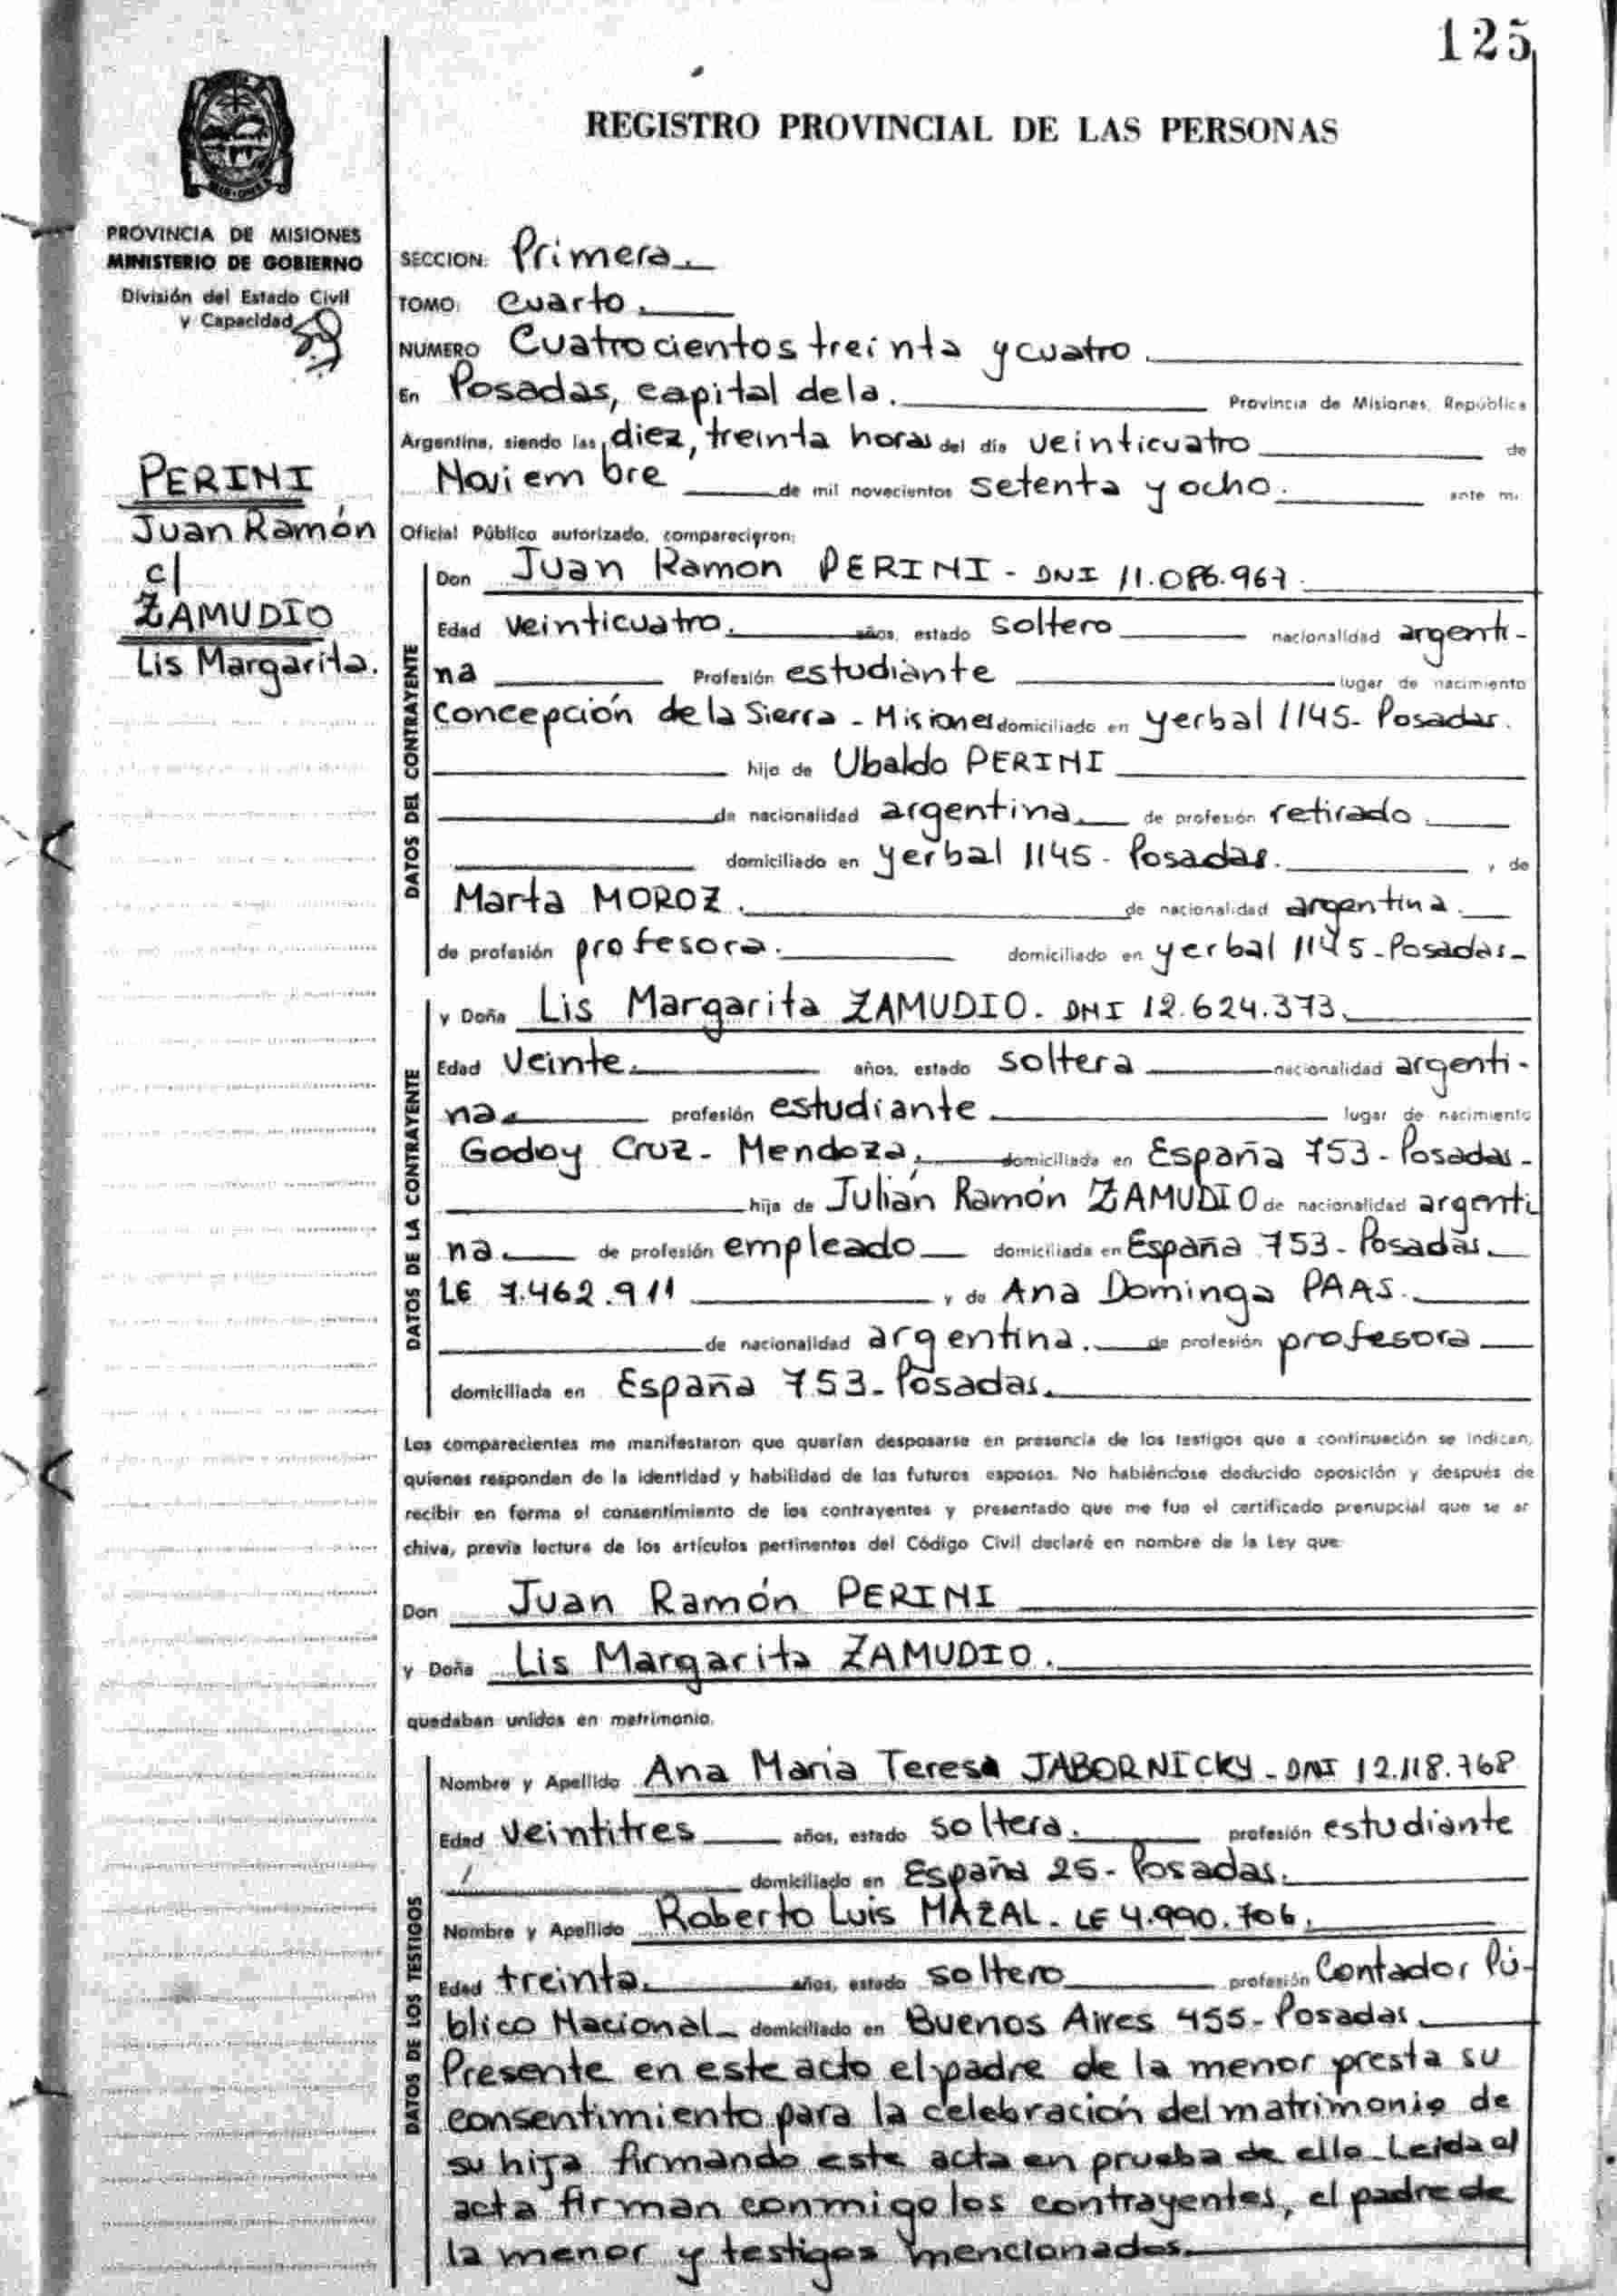 125
REGISTRO PROVINCIAL DE LAS PERSONAS
PROVINCIA DE MISIONES
MINISTERIO DE GOBIERNO
División del Estado Civil
y Capacidad
PERINI
Juan Ramón
c/
ZAMUDIO
Lis Margarita.
SECCION: Primera.
TOMO: Cuarto.
NUMERO Cuatrocientos treinta y cuatro
En Posadas, capital de la. Provincia de Misiones, República
Argentina, siendo las diez, treinta horas del día veinticuatro de
Noviembre de mil novecientos setenta y ocho. ante mi
Oficial Público autorizado, comparecieron:
DATOS DEL CONTRAYENTE
Don Juan Ramon PERINI - DNI 11.086.967.
Edad veinticuatro. años, estado soltero nacionalidad argenti-
na Profesión estudiante lugar de nacimiento
Concepción de la Sierra - Misiones domiciliado en yerbal 1145- Posadas.
hijo de Ubaldo PERINI
de nacionalidad argentina. de profesión retirado
domiciliado en yerbal 1145 - Posadas. y de
Marta MOROZ. de nacionalidad argentina.
de profesión profesora. domiciliado en yerbal 1145-Posadas-
DATOS DE LA CONTRAYENTE
y Doña Lis Margarita ZAMUDIO. DNI 12.624.373.
Edad veinte. años, estado soltera nacionalidad argenti-
na. profesión estudiante lugar de nacimiento
Godoy Cruz- Mendoza, domiciliada en España 753- Posadas-
hija de Julián Ramón ZAMUDIO de nacionalidad argenti
na. de profesión empleado domiciliada en España 753- Posadas.
LE 7.462.911 y de Ana Dominga PAAS.
de nacionalidad argentina. de profesión profesora
domiciliada en España 753-Posadas.
Los comparecientes me manifestaron que querían desposarse en presencia de los testigos que a continuación se indican,
quienes responden de la identidad y habilidad de los futuros esposos. No habiéndose deducido oposición y después de
recibir en forma el consentimiento de los contrayentes y presentado que me fue el certificado prenupcial que se ar
chiva, previa lectura de los artículos pertinentes del Código Civil declaré en nombre de la Ley que:
Don Juan Ramón PERINI
y Doña Lis Margarita ZAMUDIO.
quedaban unidos en matrimonio.
DATOS DE LOS TESTIGOS
Nombre y Apellido Ana Maria Teresa JABORNICKY - DNI 12.118.768
Edad veintitres años, estado soltera. profesión estudiante
domiciliado en España 25- Posadas.
Nombre y Apellido Roberto Luis MAZAL. LE 4.990.706.
Edad treinta. años, estado soltero profesión Contador Pú-
blico Nacional domiciliado en Buenos Aires 455- Posadas.
Presente en este acto el padre de la menor presta su
consentimiento para la celebración del matrimonio de
su hija firmando este acta en prueba de ello-Leida el
acta firman conmigo los contrayentes, el padre de
la menor y testigos mencionados.